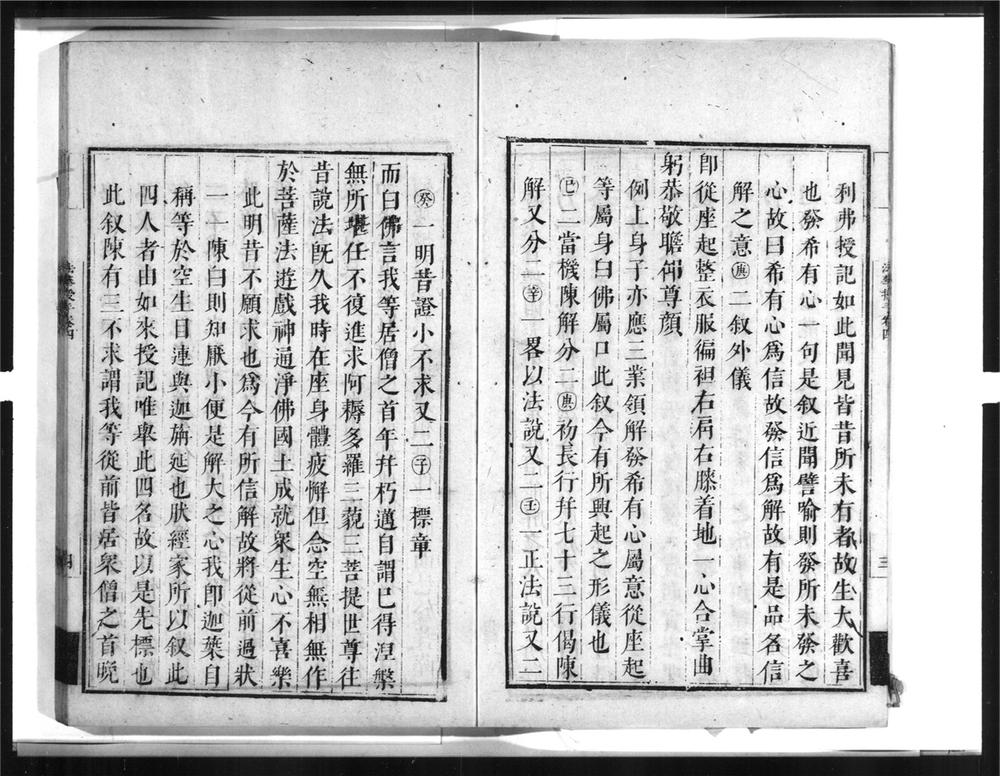 利弗授記如此聞見皆昔所未有者故生大歡喜
也發希有心一句是叙近聞譬喻則發所未發之
心故曰希有心爲信故發信爲解故有是品名信
解之意庚二叙外儀
卽從座起整衣服徧袒右肩右膝着地一心合掌曲
躬恭敬瞻仰尊顏
例上身子亦應三業領解發希有心屬意從座起
等屬身白佛屬口此叙今有所興起之形儀也
巳二當機陳解分二庚初長行幷七十三行偈陳
解又分二辛一畧以法說又二壬一正法說又二
癸一明昔證小不求又二子一標章
而白佛言我等居僧之首年幷朽邁自謂已得涅槃
無所堪任不復進求阿耨多羅三藐三菩提世尊往
昔說法旣久我時在座身體疲懈但念空無相無作
於菩薩法遊戲神通淨佛國土成就衆生心不喜樂
此明昔不願求也爲今有所信解故將從前過狀
一一陳白則知厭小便是解大之心我卽迦葉自
稱等於空生目連與迦旃延也肰經家所以叙此
四人者由如來授記唯舉此四名故以是先標也
此叙陳有三不求謂我等從前皆居衆僧之首晚